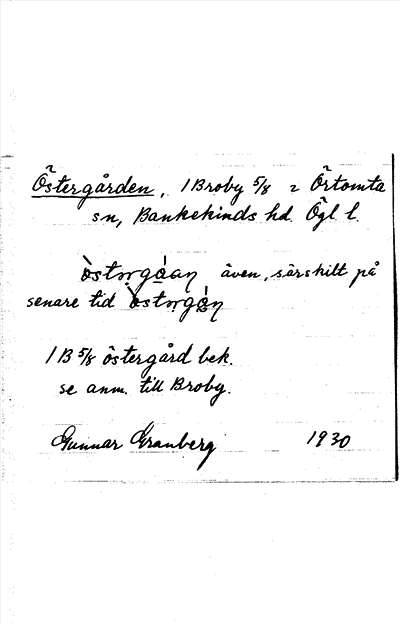 Östergården, 1 Broby 5/8 i Örtomta
sn, Bankekinds hd. Ögl l.
även, särskilt på
senare tid
1 B 5/8 östergård bek.
se anm. till Broby.
Gunnar Granberg 1930